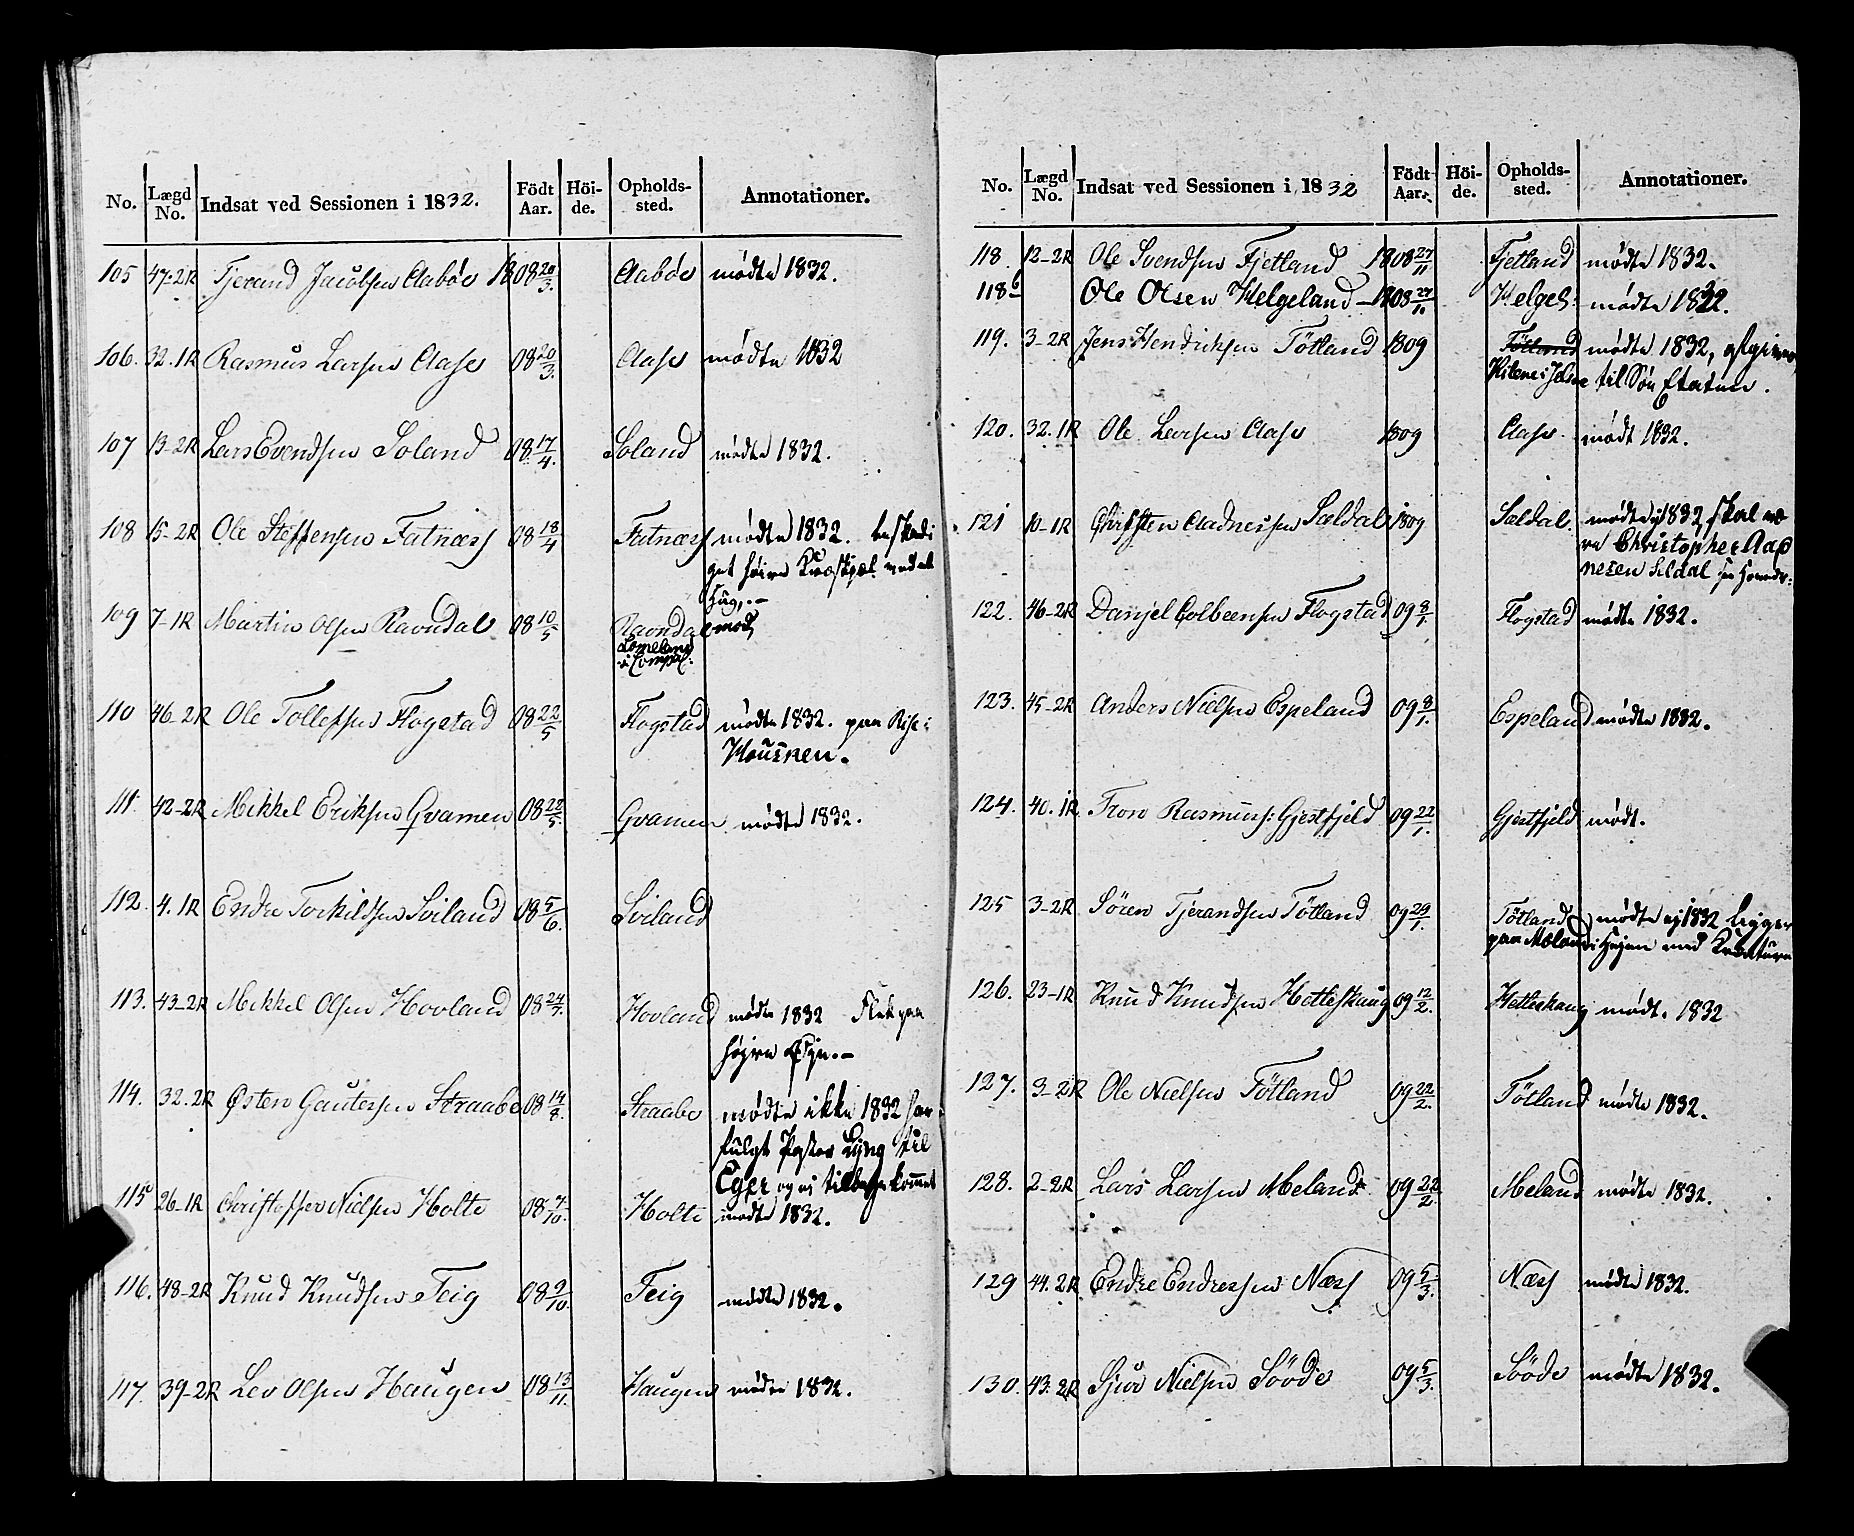 No. Lægd No. Indsat ved Sessionen i 1832. Födt Aar. Höi-de. Opholds-sted. Annotationer.
105 47-2R Tjerand Jacobsen Aabøe 1808 20/3. Aabøe mødte 1832.
106. 32.1R Rasmus Larsen Aase 08 20/3. Aase mødte 1832
107 13-2R Lars Evendsen Soland 08 17/4. Soland mødte 1832.
108 15-2R Ole Steffensen Fatnæss 08 18/4 Fatnæss mødte 1832. beskadi
get høire Knæskjæl ved et
Hug.-
109 7-1R Martin Olsen Ravndal 08 10/5 Ravndal mødt
Lomeland
i Comp.
110 46-2R Ole Tollefsen Flogstad 08 22/5 Flogstad mødte 1832. paa Rise i
Housken.
111. 42-2R Mikkel Eriksen Qvamen 08 22/5. Qvamen mødte 1832.
112. 4.1R Endre Torkildsen Sviland 08 5/6. Sviland
113. 43-2R Mikkel Olsen Hovland 08 24/7. Hovland mødte 1832 Flek paa
højre Øje.-
114. 32.2R Østen Gautesen Straabe 08 14/8. Straabe mødte ikke 1832 har
fulgt Pastor Lyng til
Eger og ej tilbagekommet
115 26-1R Christoffer Nielsen Holte 08 7/10. Holte mødte 1832.
116. 48-2R Knud Knudsen Teig 08 9/10. Teig mødte 1832.
117. 39-2R Lev Olsen Haugen 08 13/11. Haugen mødte 1832.
No. Lægd No. Indsat ved Sessionen i 1832 Födt Aar. Höi-de. Opholds-sted. Annotationer.
118. 12-2R Ole Svendsen Fjetland 1808 27/11 Fjetland mødte 1832.
118b Ole Olsen Helgeland 1808 27/11. Helgel: mødte 1832.
119. 3-2R Jens Hendriksen Tötland 1809 Tötland mødte 1832, afgiven
Hilene i Jelse til Søe Etaten.
120. 32.1R Ole Larsen Aase 1809 Aase mødt 1832.
121 10-1R Christen Aadnessen Sældal 1809 Sældal. mødte ej 1832, skal væ
re Christopher Aad
nesen Seldal
122. 46-2R Danjel Colbeensen Flogstad 09 8/1. Flogstad mødte 1832.
123. 45-2R Anders Nielsen Espeland 09 8/1. Espeland mødte 1832.
124. 40.1R Tron Rasmuss: Gjestfjeld 09 22/1. Gjestfjeld mødt.
125 3-2R Sören Tjerandsen Tötland 09 29/1. Tötland mødte ej 1832 ligger
paa Mæland i Hejen med Kreaturene
126. 23-1R Knud Knudsen Hetleskaug 09 12/2. Hetleskaug mødt. 1832
127. 3-2R Ole Nielsen Tötland 09 22/2. Tötland mødte 1832.
128. 2-2R Lars Larsen Meland 09 22/2. Meland mødte 1832.
129 44.2R Endre Endressen Næss 09 5/3. Næss mødte 1832.
130. 43.2R Sjur Nielsen Sööde 09 5/3. Sööde mødte 1832.